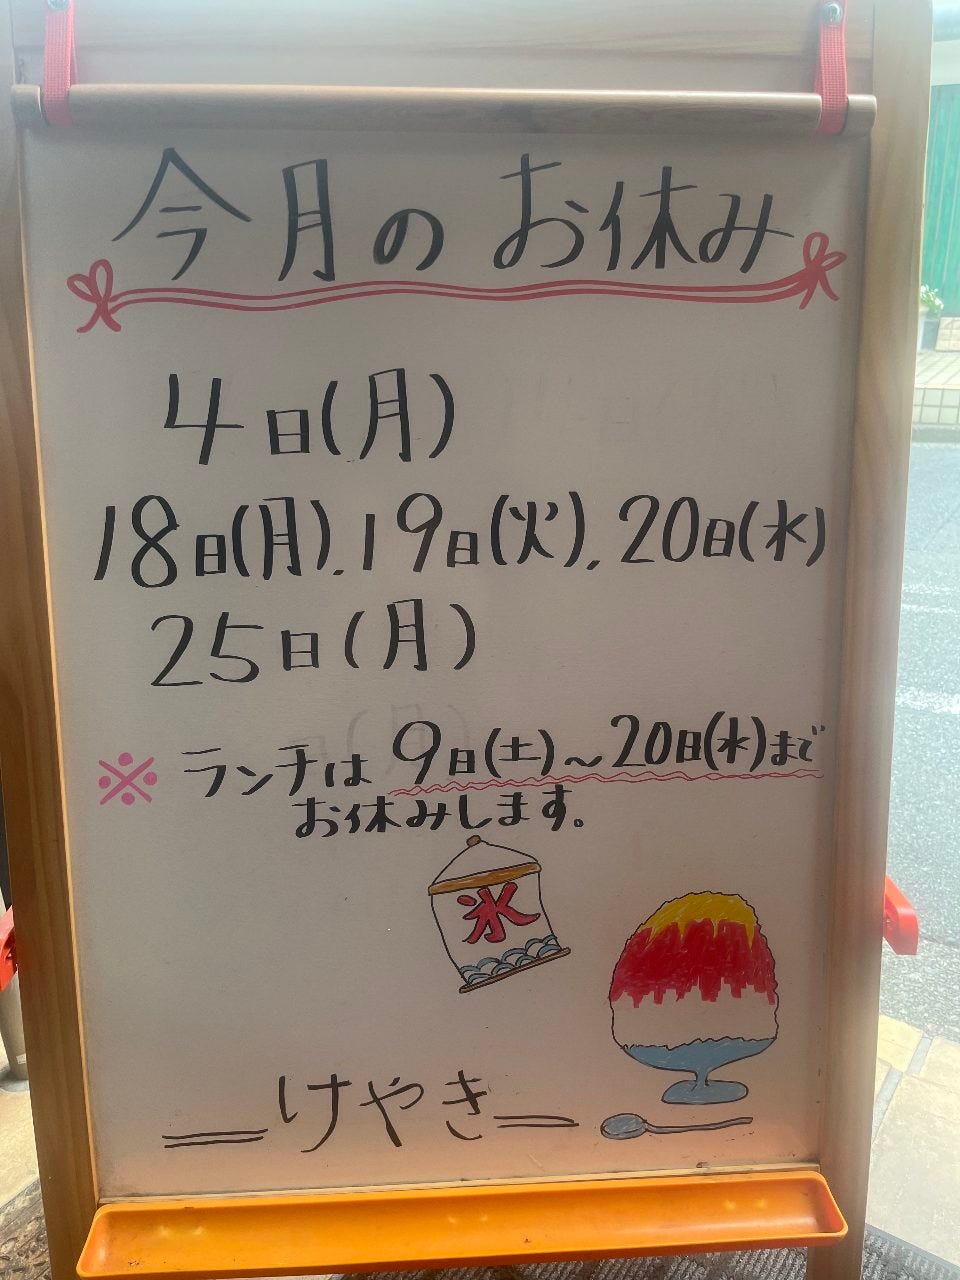 今月のお休み
4日(月)
18日(月).19日(火).20日(水)
25日(月)
※ランチは9日(土)~20日(水)まで
お休みします。
氷
けやき